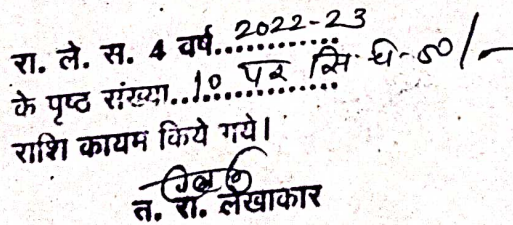 रा. ले. स. 4 वर्ष..2022-23
के पृष्ठ संख्या..10 पर सि. घी-50/-
राशि कायम किये गये।
त. रा. लेखाकार